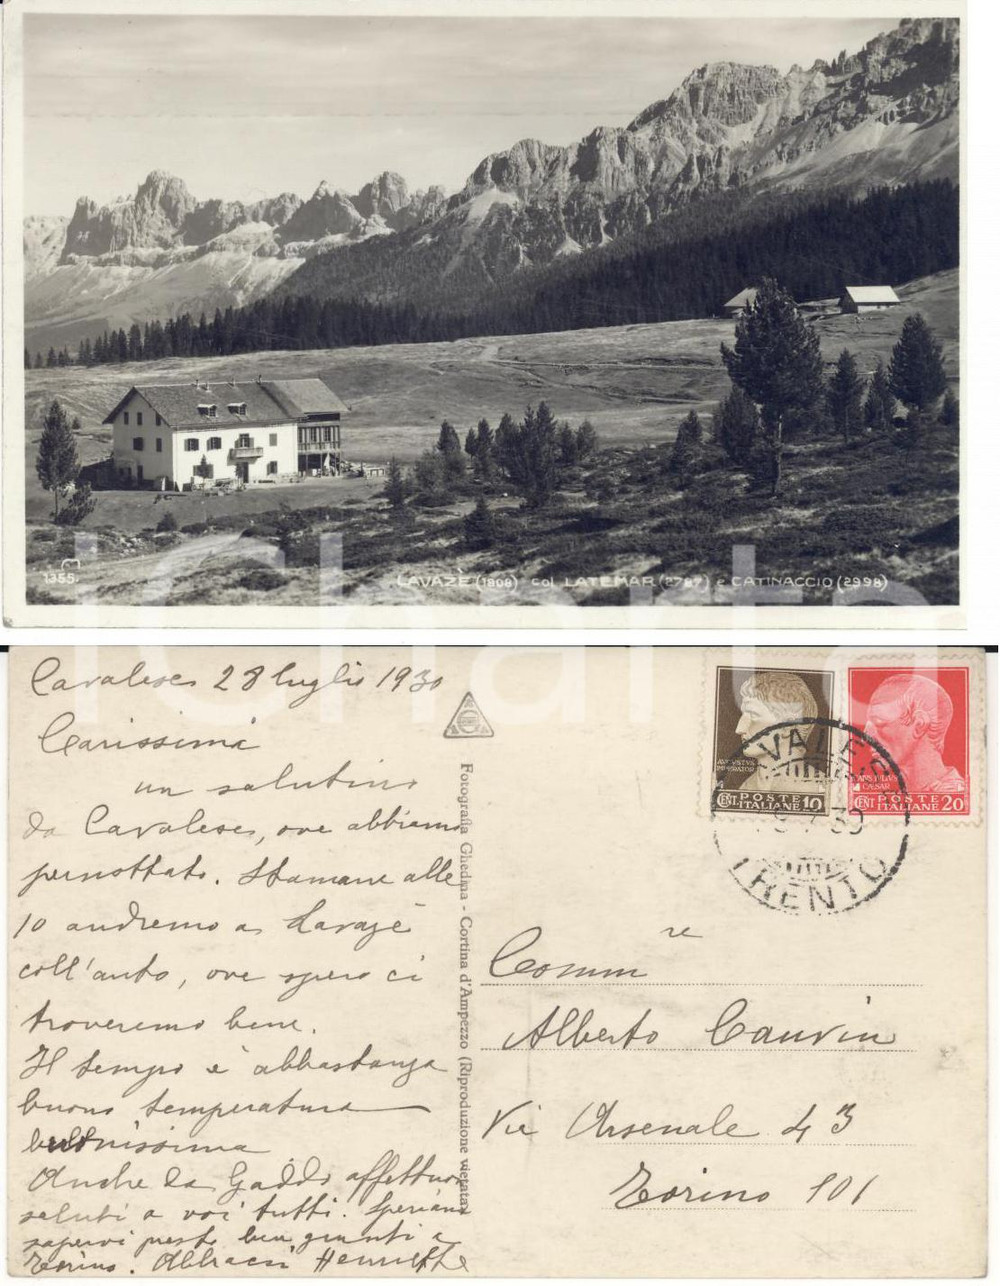 1355.
LAVAZÈ (1808) col LATEMAR (2787) e CATINACCIO (2998)
iCharta
Cavalese 28 luglio 1930
Carissimi
un salutino
da Cavalese, ove abbiamo
pernottato. Stamane alle
10 andremo a Lavazè
coll'auto, ove spero ci
troveremo bene.
Il tempo è abbastanza
buono temperatura
Anche da Gaddo affettuosi
saluti a voi tutti. Speriamo
sapervi presto ben giunti a
Torino. Abbracci Henriette
Fotografia Ghedina - Cortina d'Ampezzo (Riproduzione vietata)
AUGUSTUS
IMPERATOR
POSTE
CENT. ITALIANE 10
IULIUS
CAESAR
POSTE
CENT. ITALIANE 20
CAVALESE
30
TRENTO
Comm re
Alberto Cauvin
Via Arsenale 43
Torino 101